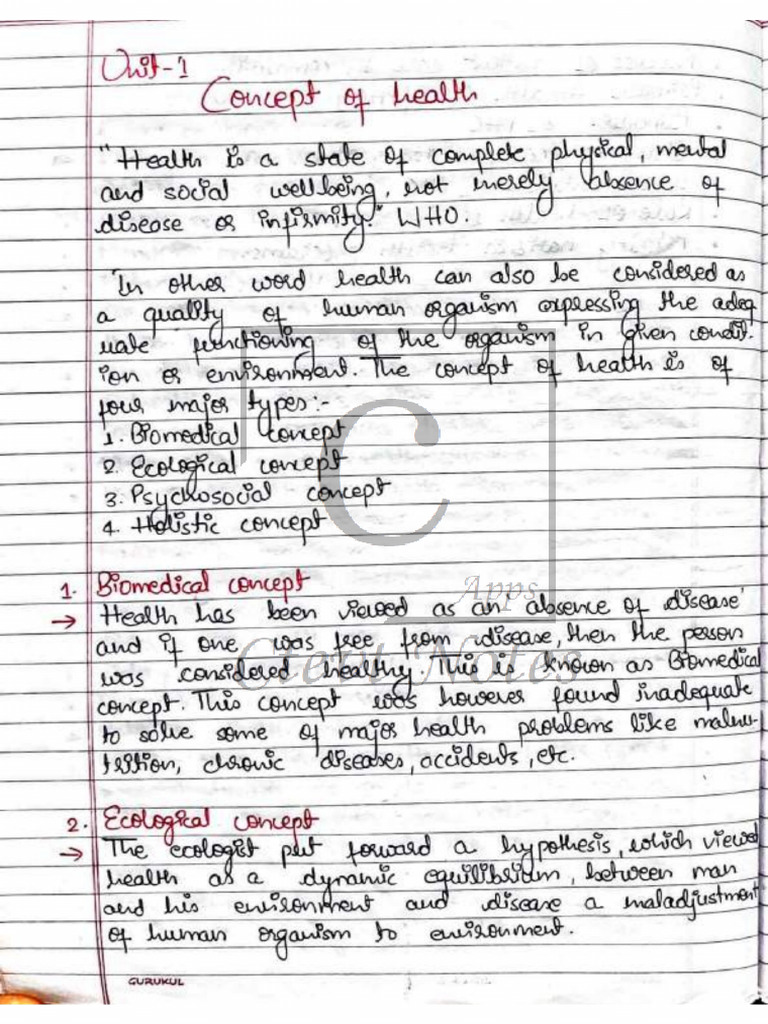 Unit-1
Concept of health
"Health is a state of complete physical, mental
and social wellbeing, not merely absence of
disease or infirmity." WHO.
In other word health can also be considered as
a quality of human organism expressing the adeq
uate functioning of the organism in given condit-
ion or environment. The concept of health is of
four major types:-
1. Biomedical concept
2. Ecological concept
3. Psychosocial concept
4. Holistic concept
1. Biomedical concept
→ Health has been viewed as an absence of disease
and if one was free from disease, then the person
was considered healthy. This is known as Biomedical
concept. This concept was however found inadequate
to solve some of major health problems like malnu-
trition, chronic diseases, accidents, etc.
2. Ecological concept
→ The ecologist put forward a hypothesis, which viewed
health as a dynamic equilibrium, between man
and his environment and disease a maladjustment
of human organism to environment.
GURUKUL
C
Apps
Notes